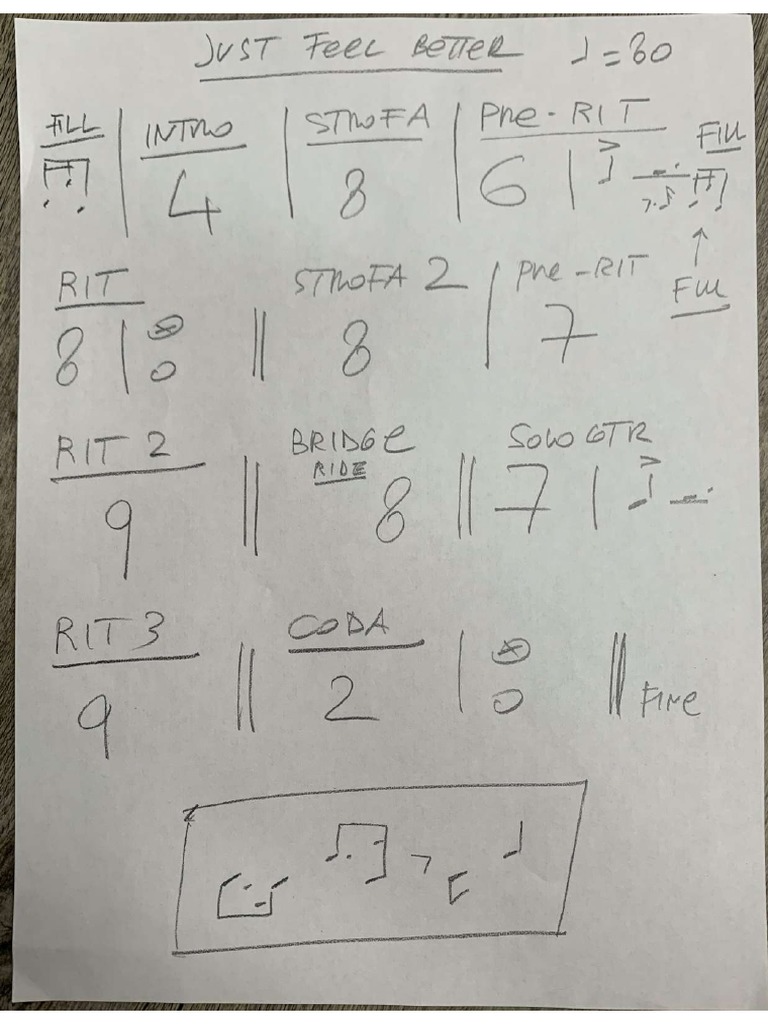 JUST FEEL BETTER ♩=80
FILL INTRO STROFA PRE-RIT FILL
4 8 6
RIT STROFA 2 PRE-RIT FILL
8 8 7
RIT 2 BRIDGE SOLO GTR
RIDE
9 8 7
RIT 3 CODA
9 2 FINE